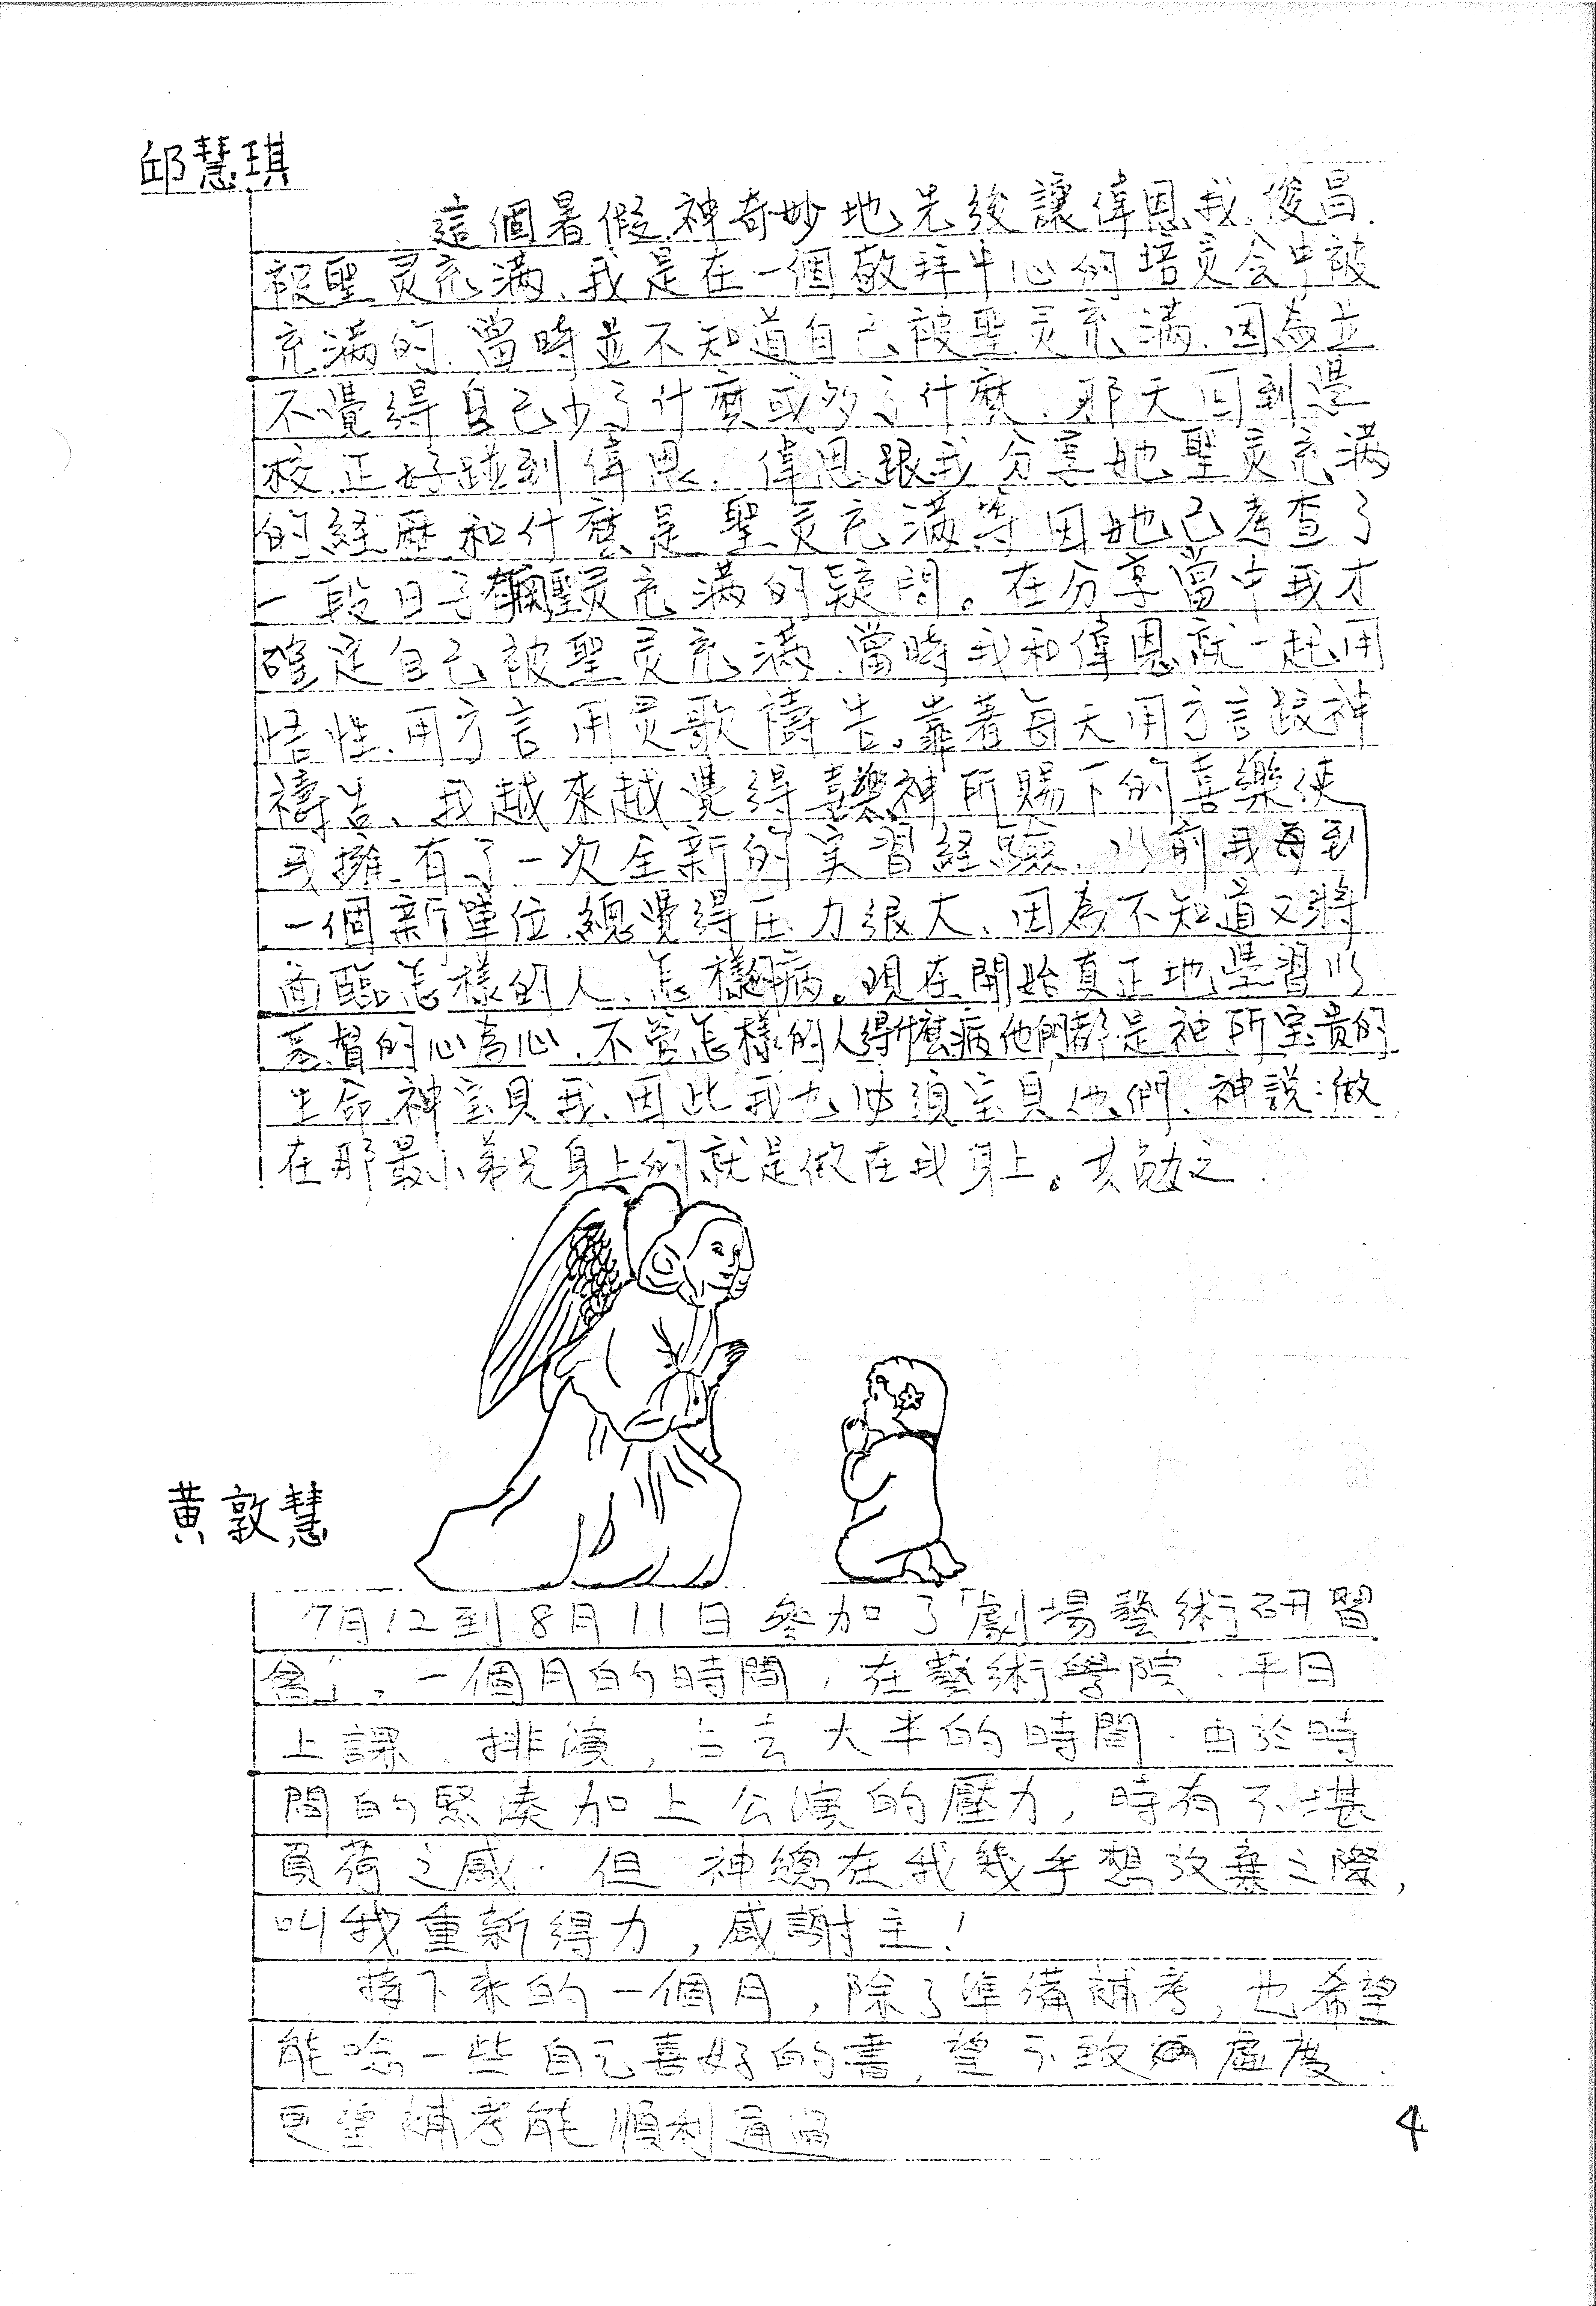 邱慧琪
這個暑假神奇妙地先後讓偉恩、我、俊昌
被聖灵充满、我是在一個敬拜中心的培灵会中被
充满的、當時並不知道自己被聖灵充满、因為並
不覺得自己少了什麼或多了什麼、那天回到學
校正好碰到偉恩、偉恩跟我分享她聖灵充满
的経歷和什麼是聖灵充满等因她已考查了
一段日子有關聖灵充满的疑問。在分享當中我才
確定自己被聖灵充满、當時我和偉恩就一起用
悟性、用方言、用灵歌禱告。靠著每天用方言跟神
禱告、我越來越覺得喜樂、神所賜下的喜樂使
我擁有了一次全新的実習経驗、以前我每到
一個新單位、總覺得压力很大、因為不知道又將
面臨怎樣的人、怎樣的病。現在開始真正地學習以
基督的心為心、不管怎樣的人得什麼病他們都是神所宝贵的
生命、神宝貝我、因此我也必須宝貝他們、神說：做
在那最小弟兄身上的就是做在我身上。共勉之
黃敦慧
7月12到8月11日參加了「劇場藝術研習
會」。一個月的時間，在藝術學院、平日
上課、排演，占去大半的時間．由於時
間的緊湊加上公演的壓力，時有不堪
負荷之感．但 神總在我幾乎想放棄之際，
叫我重新得力，感謝主！
接下來的一個月，除了準備補考，也希望
能唸一些自己喜好的書，望不致兩處度
更望補考能順利通過
4